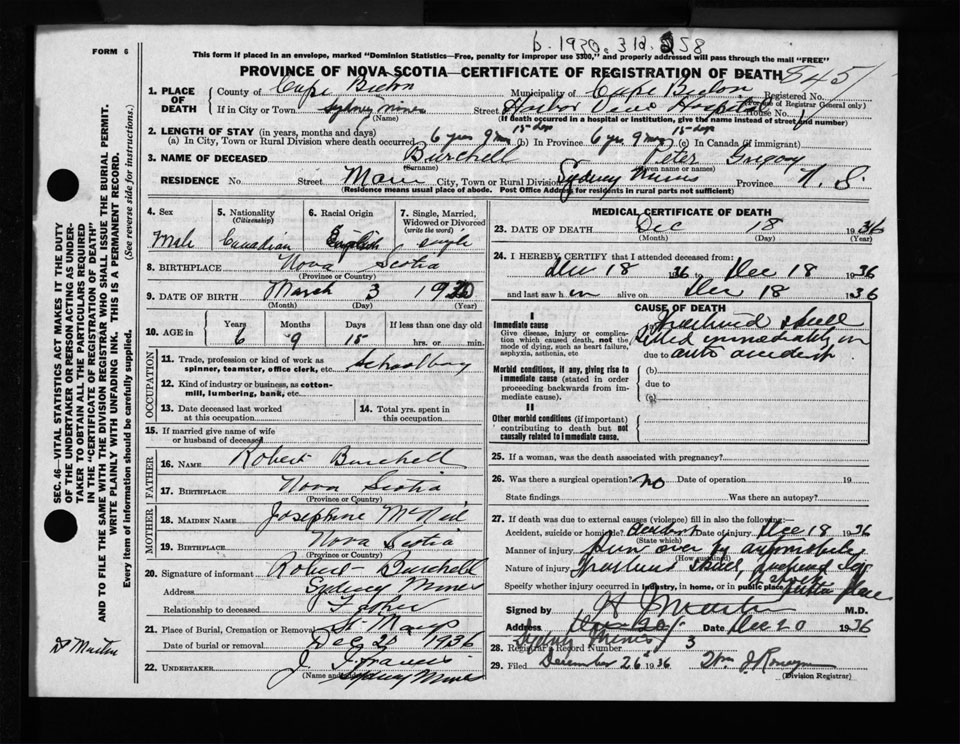 b. 1930. 312. 258
FORM 6
This form if placed in an envelope, marked "Dominion Statistics—Free, penalty for improper use $300," and properly addressed will pass through the mail "FREE"
PROVINCE OF NOVA SCOTIA—CERTIFICATE OF REGISTRATION OF DEATH
845
1. PLACE OF DEATH County of Cape Breton Municipality of Cape Breton Registered No. (For use of Registrar General only)
If in City or Town Sydney Mines (Name) Street Harbor View Hospital House No.
(If death occurred in a hospital or institution, give the name instead of street and number)
2. LENGTH OF STAY (in years, months and days)
(a) In City, Town or Rural Division where death occurred 6 yrs 9 mos 15 days (b) In Province 6 yrs 9 mos 15 days (c) In Canada (if immigrant)
3. NAME OF DECEASED Burchell (Surname) Peter Gregory (Given name or names)
RESIDENCE No Street Main City, Town or Rural Division Sydney Mines Province N. S.
(Residence means usual place of abode. Post Office Address for residents in rural parts not sufficient)
4. Sex Male
5. Nationality (Citizenship) Canadian
6. Racial Origin English
7. Single, Married, Widowed or Divorced (write the word) single
8. BIRTHPLACE Nova Scotia (Province or Country)
9. DATE OF BIRTH March (Month) 3 (Day) 1930 (Year)
10. AGE in Years 6 Months 9 Days 15 If less than one day old hrs. or min.
OCCUPATION
11. Trade, profession or kind of work as spinner, teamster, office clerk, etc. Schoolboy
12. Kind of industry or business, as cotton-mill, lumbering, bank, etc.
13. Date deceased last worked at this occupation
14. Total yrs. spent in this occupation
15. If married give name of wife or husband of deceased
FATHER
16. NAME Robert Burchell
17. BIRTHPLACE Nova Scotia (Province or Country)
MOTHER
18. MAIDEN NAME Josephine McNeil
19. BIRTHPLACE Nova Scotia (Province or Country)
20. Signature of informant Robert Burchell
Address Sydney Mines
Relationship to deceased Father
21. Place of Burial, Cremation or Removal St Marys
Date of burial or removal Dec 20 1936
22. UNDERTAKER J. J. Francis
(Name and address) Sydney Mines
MEDICAL CERTIFICATE OF DEATH
23. DATE OF DEATH Dec (Month) 18 (Day) 1936 (Year)
24. I HEREBY CERTIFY that I attended deceased from:
Dec 18 1936 to Dec 18 1936
and last saw him alive on Dec 18 1936
CAUSE OF DEATH
I
Immediate cause
Give disease, injury or complication which caused death, not the mode of dying, such as heart failure, asphyxia, asthenia, etc
Fractured skull
Killed immediately in
due to auto accident
Morbid conditions, if any, giving rise to immediate cause (stated in order proceeding backwards from immediate cause).
(b)
due to
(c)
II
Other morbid conditions (if important) contributing to death but not causally related to immediate cause.
25. If a woman, was the death associated with pregnancy?
26. Was there a surgical operation? No Date of operation 19
State findings Was there an autopsy?
27. If death was due to external causes (violence) fill in also the following:—
Accident, suicide or homicide? Accident (State which) Date of injury Dec 18 1936
Manner of injury Run over by automobile (How sustained)
Nature of injury Fractured skull,
Specify whether injury occurred in industry, in home, or in public place public place
Signed by H J Martin M.D.
Address Date Dec 20 1936
Sydney Mines
28. Registrar's Record Number 3
29. Filed December 26 1936 Wm J.
(Division Registrar)
SEC. 46—VITAL STATISTICS ACT MAKES IT THE DUTY
OF THE UNDERTAKER OR PERSON ACTING AS UNDER-
TAKER TO OBTAIN ALL THE PARTICULARS REQUIRED
IN THE "CERTIFICATE OF REGISTRATION OF DEATH"
AND TO FILE THE SAME WITH THE DIVISION REGISTRAR WHO SHALL ISSUE THE BURIAL PERMIT.
WRITE PLAINLY WITH UNFADING INK. THIS IS A PERMANENT RECORD.
Every item of information should be carefully supplied. (See reverse side for instructions.)
Dr Martin